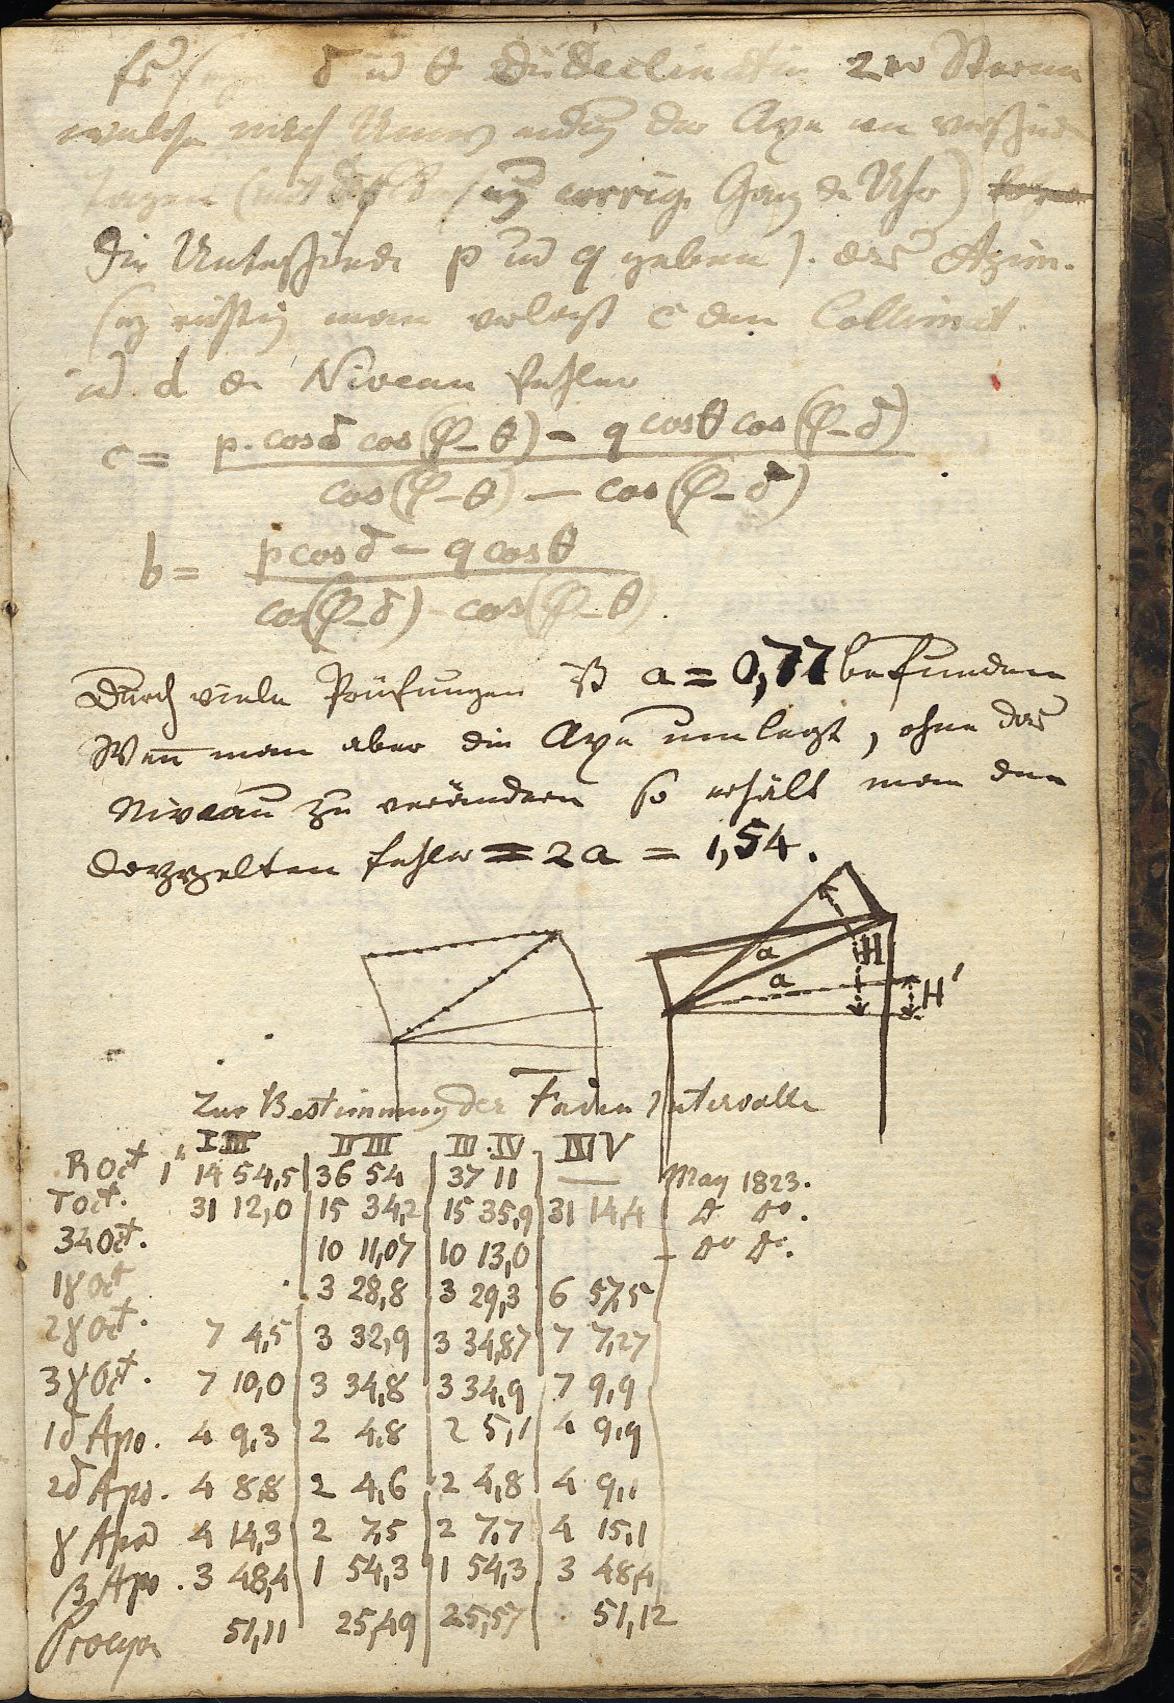 δ u θ die Declination 2er Sterne
welche nach Umwendung der Axe an verschied
tagen (mit corrig. Gang der Uhr)
die Unterschiede p und q geben). das Azim.
richtig man verlangt c den Collimat.
und d den Niveau fehler
c = p. cos δ cos (φ – θ) – q cos θ cos (φ – δ)
cos (φ – θ) – cos (φ – δ)
b = p cos δ – q cos θ
cos (φ – δ) – cos (φ – θ).
Durch viele Prüfungen ist a = 0,77 befunden
Wen̄ man aber die Axe umlegt, ohne das
Niveau zu verändern so erhält man den
doppelten fehler = 2a = 1,54.
a H
a H'
Zur Bestimmung der Faden Intervalle
I III II III III . IV III V
R Oct 1h 14 54,5 36 54 37 11 — May 1823.
τ Oct. 31 12,0 15 34,2 15 35,9 31 14,4 do do.
34 Oct. 10 11,07 10 13,0 – do do.
1γ Oct 3 28,8 3 29,3 6 57,5
2γ Oct. 7 4,5 3 32,9 3 34,87 7 7,27
3γ Oct. 7 10,0 3 34,8 3 34,9 7 9,9
1δ Apo. 4 9,3 2 4,8 2 5,1 4 9,9
2δ Apo. 4 8,8 2 4,6 2 4,8 4 9,1
γ Apo 4 14,3 2 7,5 2 7,7 4 15,1
β Apo. 3 48,4 1 54,3 1 54,3 3 48,4
Procyon 51,11 25,49 25,57 51,12